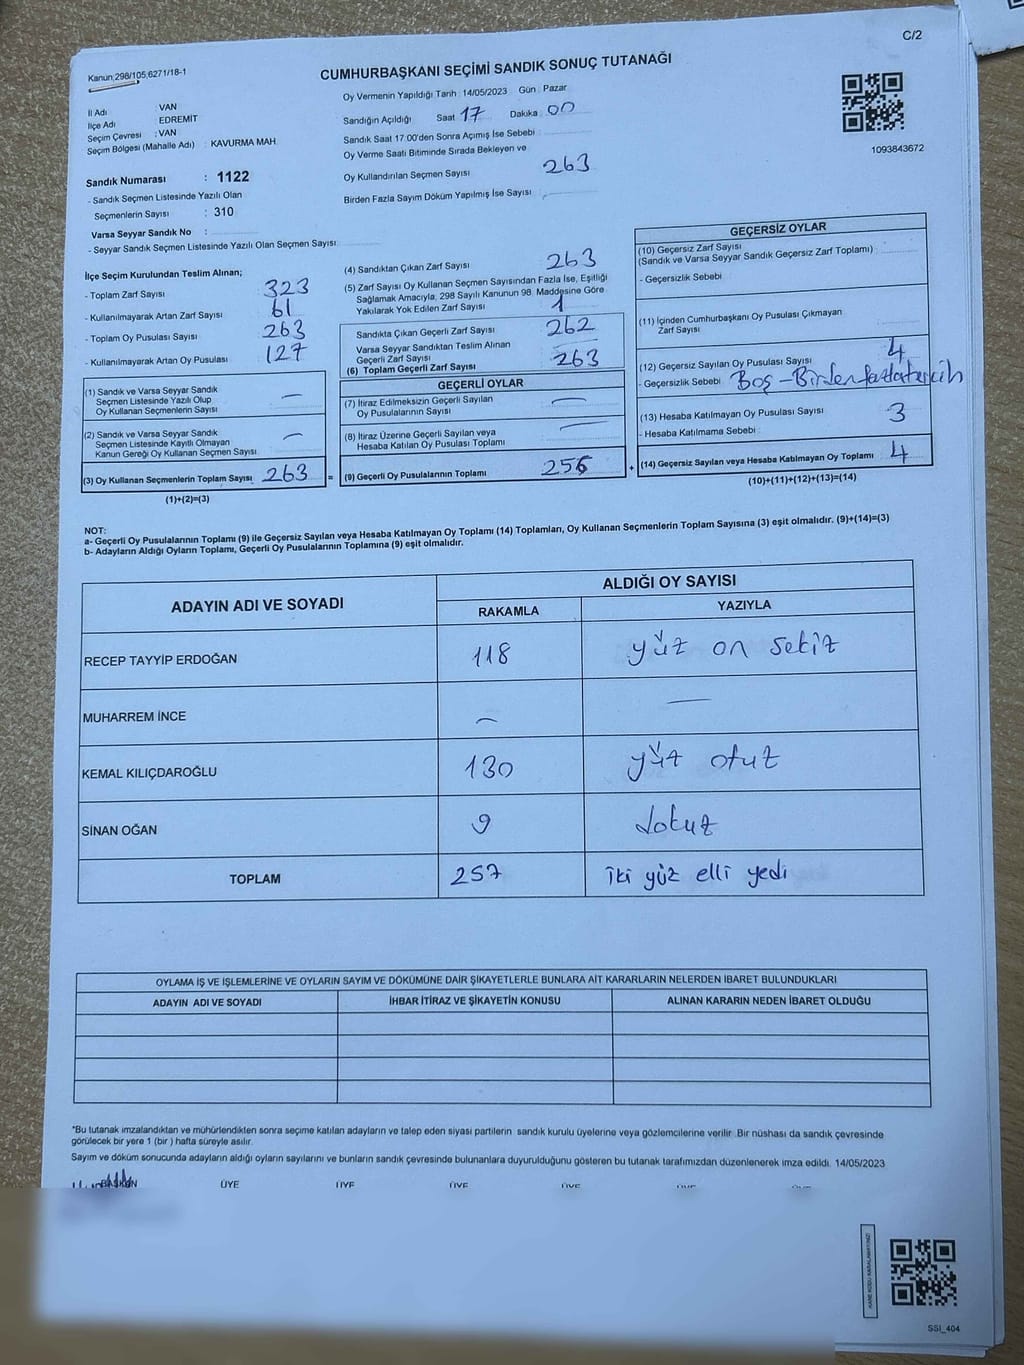 C/2
Kanun;298/105,6271/18-1
CUMHURBAŞKANI SEÇİMİ SANDIK SONUÇ TUTANAĞI
İl Adı : VAN
İlçe Adı : EDREMİT
Seçim Çevresi : VAN
Seçim Bölgesi (Mahalle Adı) : KAVURMA MAH.
Sandık Numarası : 1122
- Sandık Seçmen Listesinde Yazılı Olan
Seçmenlerin Sayısı : 310
Varsa Seyyar Sandık No :
- Seyyar Sandık Seçmen Listesinde Yazılı Olan Seçmen Sayısı:
Oy Vermenin Yapıldığı Tarih : 14/05/2023 Gün : Pazar
Sandığın Açıldığı Saat 17 Dakika 00
Sandık Saat 17:00'den Sonra Açımış İse Sebebi :
Oy Verme Saati Bitiminde Sırada Bekleyen ve
Oy Kullandırılan Seçmen Sayısı 263
Birden Fazla Sayım Döküm Yapılmış İse Sayısı :
1093843672
İlçe Seçim Kurulundan Teslim Alınan;
- Toplam Zarf Sayısı 323
- Kullanılmayarak Artan Zarf Sayısı 61
- Toplam Oy Pusulası Sayısı 263
- Kullanılmayarak Artan Oy Pusulası 127
(1) Sandık ve Varsa Seyyar Sandık
Seçmen Listesinde Yazılı Olup
Oy Kullanan Seçmenlerin Sayısı —
(2) Sandık ve Varsa Seyyar Sandık
Seçmen Listesinde Kayıtlı Olmayan
Kanun Gereği Oy Kullanan Seçmen Sayısı —
(3) Oy Kullanan Seçmenlerin Toplam Sayısı 263 =
(1)+(2)=(3)
(4) Sandıktan Çıkan Zarf Sayısı 263
(5) Zarf Sayısı Oy Kullanan Seçmen Sayısından Fazla İse, Eşitliği
Sağlamak Amacıyla, 298 Sayılı Kanunun 98. Maddesine Göre
Yakılarak Yok Edilen Zarf Sayısı 1
Sandıkta Çıkan Geçerli Zarf Sayısı 262
Varsa Seyyar Sandıktan Teslim Alınan
Geçerli Zarf Sayısı
(6) Toplam Geçerli Zarf Sayısı 263
GEÇERLİ OYLAR
(7) İtiraz Edilmeksizin Geçerli Sayılan
Oy Pusulalarının Sayısı —
(8) İtiraz Üzerine Geçerli Sayılan veya
Hesaba Katılan Oy Pusulası Toplamı —
(9) Geçerli Oy Pusulalarının Toplamı 256 +
GEÇERSİZ OYLAR
(10) Geçersiz Zarf Sayısı
(Sandık ve Varsa Seyyar Sandık Geçersiz Zarf Toplamı)
- Geçersizlik Sebebi
(11) İçinden Cumhurbaşkanı Oy Pusulası Çıkmayan
Zarf Sayısı
(12) Geçersiz Sayılan Oy Pusulası Sayısı 4
- Geçersizlik Sebebi Boş - Birden fazla tercih
(13) Hesaba Katılmayan Oy Pusulası Sayısı 3
- Hesaba Katılmama Sebebi
(14) Geçersiz Sayılan veya Hesaba Katılmayan Oy Toplamı 4
(10)+(11)+(12)+(13)=(14)
NOT:
a- Geçerli Oy Pusulalarının Toplamı (9) ile Geçersiz Sayılan veya Hesaba Katılmayan Oy Toplamı (14) Toplamları, Oy Kullanan Seçmenlerin Toplam Sayısına (3) eşit olmalıdır. (9)+(14)=(3)
b- Adayların Aldığı Oyların Toplamı, Geçerli Oy Pusulalarının Toplamına (9) eşit olmalıdır.
ADAYIN ADI VE SOYADI ALDIĞI OY SAYISI
RAKAMLA YAZIYLA
RECEP TAYYİP ERDOĞAN 118 yüz on sekiz
MUHARREM İNCE — —
KEMAL KILIÇDAROĞLU 130 yüz otuz
SİNAN OĞAN 9 dokuz
TOPLAM 257 iki yüz elli yedi
OYLAMA İŞ VE İŞLEMLERİNE VE OYLARIN SAYIM VE DÖKÜMÜNE DAİR ŞİKAYETLERLE BUNLARA AİT KARARLARIN NELERDEN İBARET BULUNDUKLARI
ADAYIN ADI VE SOYADI İHBAR İTİRAZ VE ŞİKAYETİN KONUSU ALINAN KARARIN NEDEN İBARET OLDUĞU
*Bu tutanak imzalandıktan ve mühürlendikten sonra seçime katılan adayların ve talep eden siyasi partilerin sandık kurulu üyelerine veya gözlemcilerine verilir. Bir nüshası da sandık çevresinde
görülecek bir yere 1 (bir ) hafta süreyle asılır.
Sayım ve döküm sonucunda adayların aldığı oyların sayılarını ve bunların sandık çevresinde bulunanlara duyurulduğunu gösteren bu tutanak tarafımızdan düzenlenerek imza edildi. 14/05/2023
BAŞKAN ÜYE ÜYE ÜYE ÜYE ÜYE ÜYE
KARE KODU KARALAMAYINIZ!
SSI_404